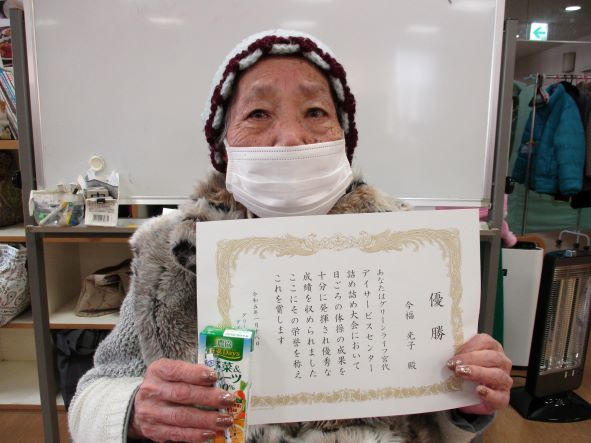 優勝
今福 光子 殿
あなたはグリーンライフ宮代
デイサービスセンター
詰め詰め大会において
日ごろの体操の成果を
十分に発揮され優秀な
成績を収められました
ここにその栄誉を称え
これを賞します
Days